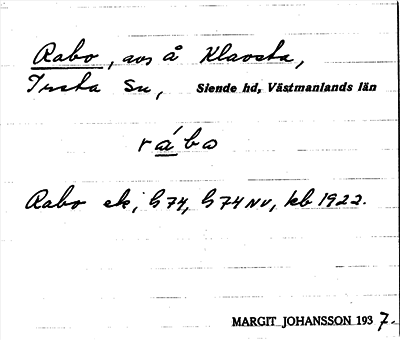 Rabo, avs å Klavsta,
Irsta sn, Siende hd, Västmanlands län
rába
Rabo ek, G 74, G 74 NV, kb 1922.
MARGIT JOHANSSON 1937.